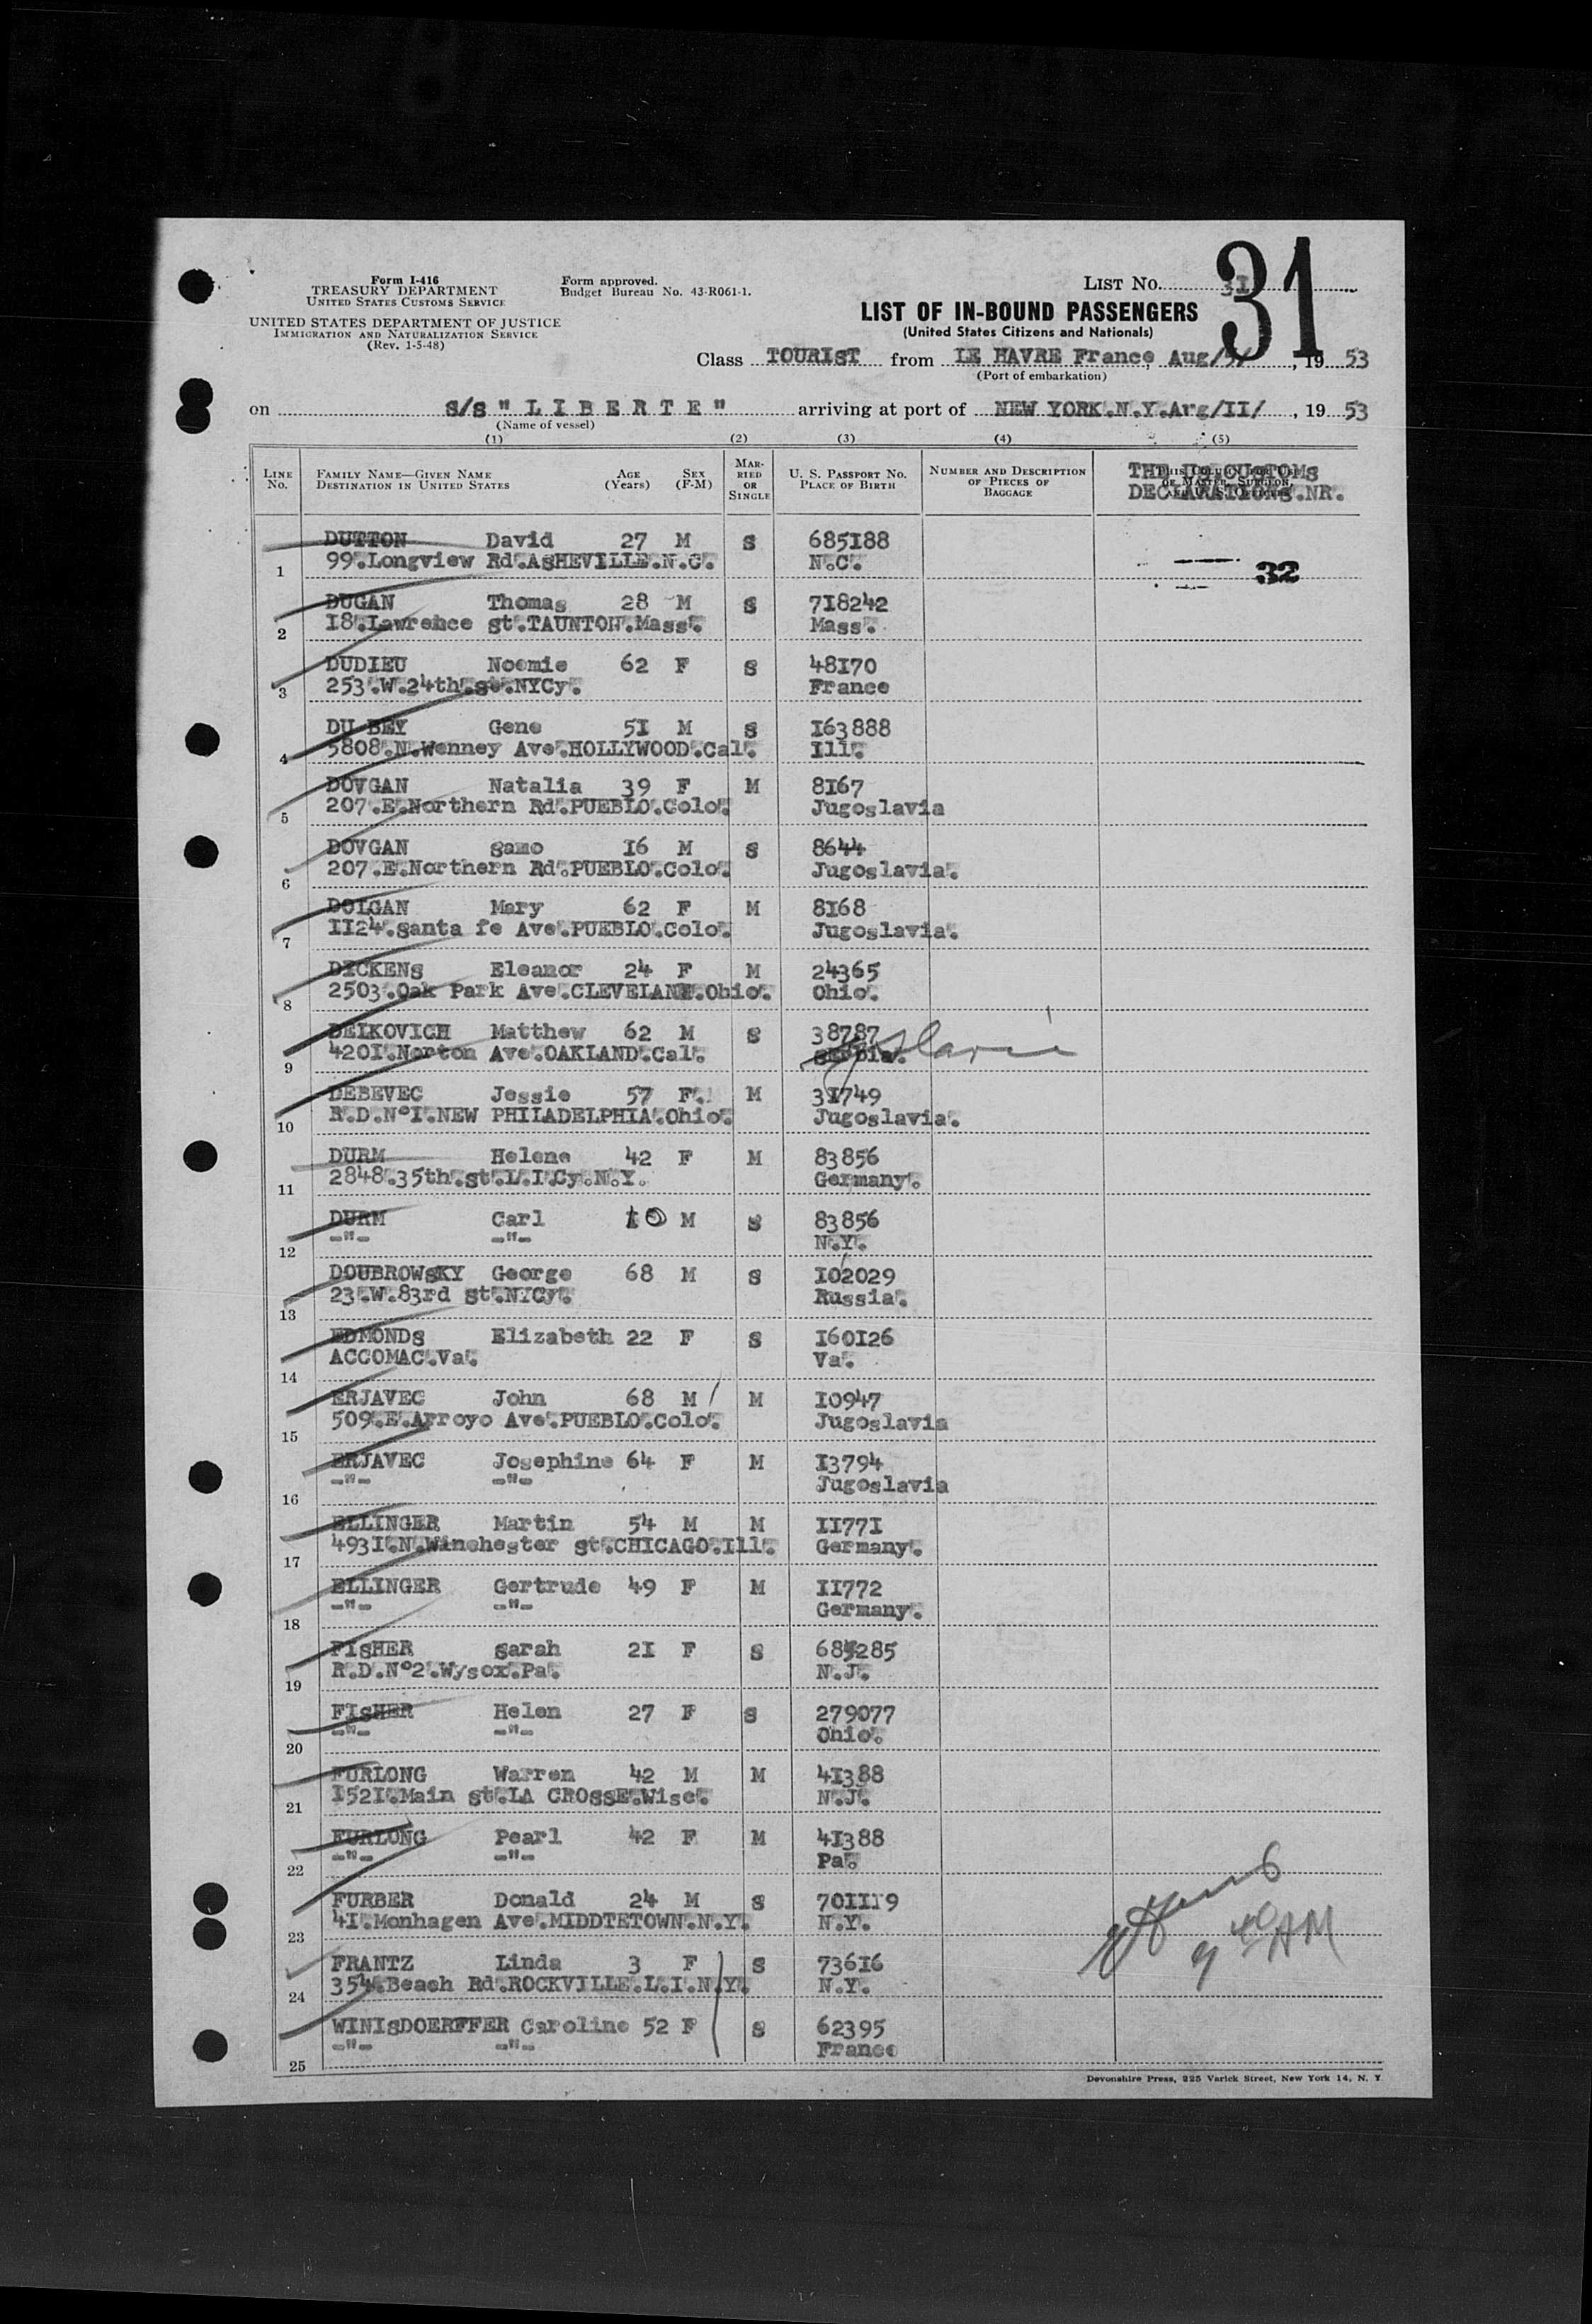 31
Form I-416
TREASURY DEPARTMENT
UNITED STATES CUSTOMS SERVICE
UNITED STATES DEPARTMENT OF JUSTICE
IMMIGRATION AND NATURALIZATION SERVICE
(Rev. 1-5-48)
Form approved.
Budget Bureau No. 43-R061-1.
LIST NO. 31
LIST OF IN-BOUND PASSENGERS
(United States Citizens and Nationals)
Class TOURIST from LE HAVRE France, Aug/5/, 1953
(Port of embarkation)
on S/S "LIBERTE" arriving at port of NEW YORK.N.Y.Arg/II/, 1953
(Name of vessel)
(1) (2) (3) (4) (5)
LINE NO. FAMILY NAME—GIVEN NAME DESTINATION IN UNITED STATES AGE (Years) SEX (F-M) MARRIED OR SINGLE U. S. PASSPORT NO. PLACE OF BIRTH NUMBER AND DESCRIPTION OF PIECES OF BAGGAGE THE U.S.CUSTOMS DECLARATIONS.NR.
1 DUTTON David 27 M S 685188
99.Longview Rd.ASHEVILLE.N.C. N.C. 32
2 DUGAN Thomas 28 M S 718242
I8.Lawrence st.TAUNTON.Mass. Mass.
3 DUDIEU Noemie 62 F S 48I70
253.W.24th.st.NYCy. France
4 DU BEY Gene 5I M S I63888
5808.N.Wenney Ave.HOLLYWOOD.Cal. Ill.
5 DOVGAN Natalia 39 F M 8I67
207.E.Northern Rd.PUEBLO.Colo. Jugoslavia
6 DOVGAN Samo I6 M S 8644
207.E.Northern Rd.PUEBLO.Colo. Jugoslavia.
7 DOLGAN Mary 62 F M 8I68
II24.Santa fe Ave.PUEBLO.Colo. Jugoslavia.
8 DICKENS Eleanor 24 F M 24365
2503.Oak Park Ave.CLEVELAND.Ohio. Ohio.
9 DEIKOVICH Matthew 62 M S 38787
420I.Norton Ave.OAKLAND.Cal. Serbia. Yoslavia
10 DEBEVEC Jessie 57 F. M 3I749
R.D.N°I.NEW PHILADELPHIA.Ohio. Jugoslavia.
11 DURM Helene 42 F M 83856
2848.35th.st.L.I.Cy.N.Y. Germany.
12 DURM Carl 10 M S 83856
-"- -"- N.Y.
13 DOUBROWSKY George 68 M S I02029
23.W.83rd st.NYCy. Russia.
14 EDMONDS Elizabeth 22 F S I60I26
ACCOMAC.Va. Va.
15 ERJAVEC John 68 M M I0947
509.E.Arroyo Ave.PUEBLO.Colo. Jugoslavia
16 ERJAVEC Josephine 64 F M I3794
-"- -"- Jugoslavia
17 ELLINGER Martin 54 M M II77I
493I.N.Winchester st.CHICAGO.Ill. Germany.
18 ELLINGER Gertrude 49 F M II772
-"- -"- Germany.
19 FISHER Sarah 2I F S 685285
R.D.N°2.Wysox.Pa. N.J.
20 FISHER Helen 27 F S 279077
-"- -"- Ohio.
21 FURLONG Warren 42 M M 4I388
I52I.Main st.LA CROSSE.Wisc. N.J.
22 FURLONG Pearl 42 F M 4I388
-"- -"- Pa.
23 FURBER Donald 24 M S 70III9
4I.Monhagen Ave.MIDDTETOWN.N.Y. N.Y.
9 40 AM
24 FRANTZ Linda 3 F S 736I6
354.Beach Rd.ROCKVILLE.L.I.N.Y. N.Y.
25 WINISDOERFFER Caroline 52 F S 62395
-"- -"- France
Devonshire Press, 225 Varick Street, New York 14, N. Y.